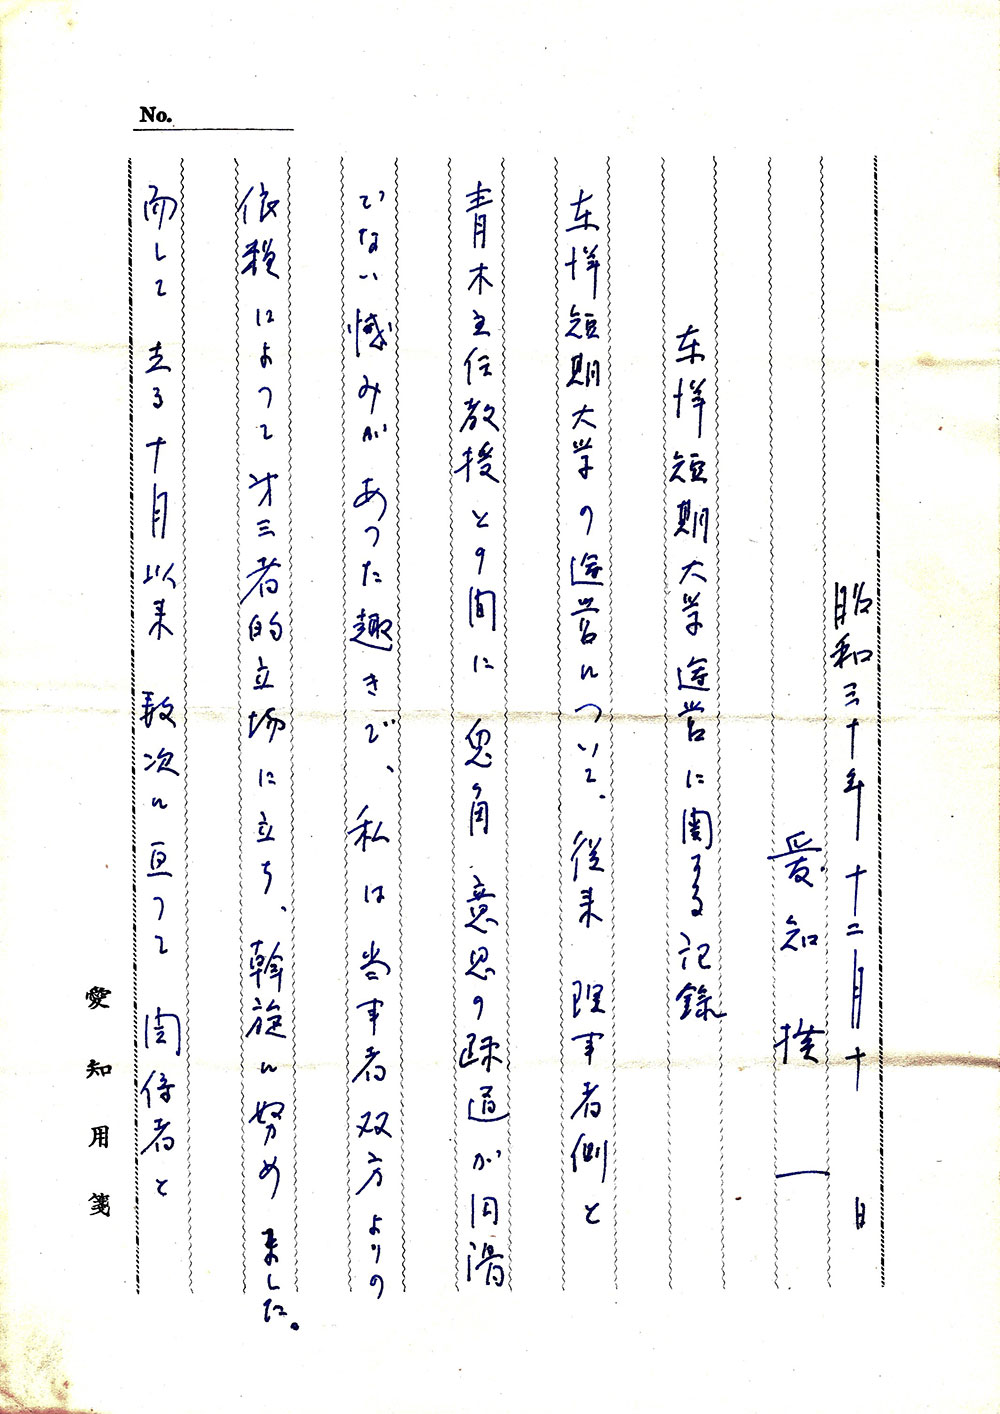 No.
昭和三十年十二月十 日
愛知揆一
東洋短期大学運営に関する記録
東洋短期大学の運営について、従来 理事者側と
青木主任教授との間に 兎角 意思の疎通が円滑
でない憾みがあつた趣きで、私は当事者双方よりの
依頼によつて第三者的立場に立ち、斡旋に努め来ました。
而して去る十月以来 数次に亘つて 関係者と
愛知用箋